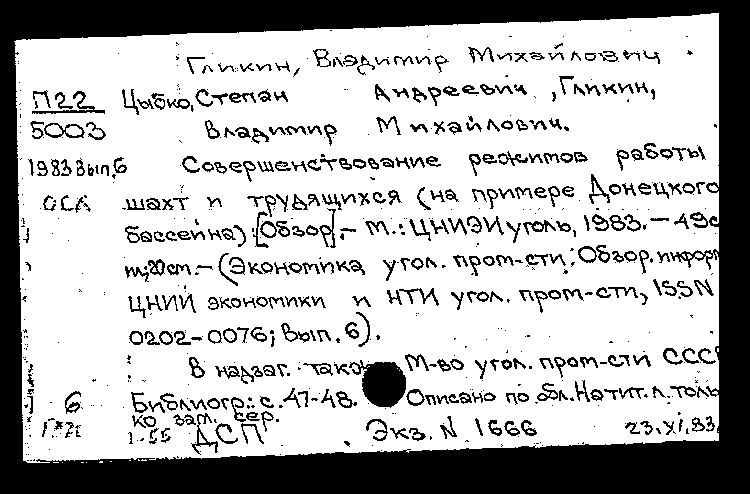 Гликин, Владимир Михайлович
П22 Цыбко, Степан Андреевич, Гликин,
5003 Владимир Михайлович.
1983 Вып.6 Совершенствование режимов работы
ОСА шахт и трудящихся (на примере Донецкого
бассейна): [Обзор].- М.: ЦНИЭИуголь, 1983. - 49с
ил; 20см. - (Экономика угол. пром-сти: Обзор. информ
ЦНИИ экономики и НТИ угол. пром-сти, ISSN
0202-0076; Вып. 6).
В надзаг. также М-во угол. пром-сти СССР
6 Библиогр: с. 47-48. Описано по обл. На тит. л. толь
ко зам. сер.
1-55 ДСП Экз. N 1666 23.XI.83.